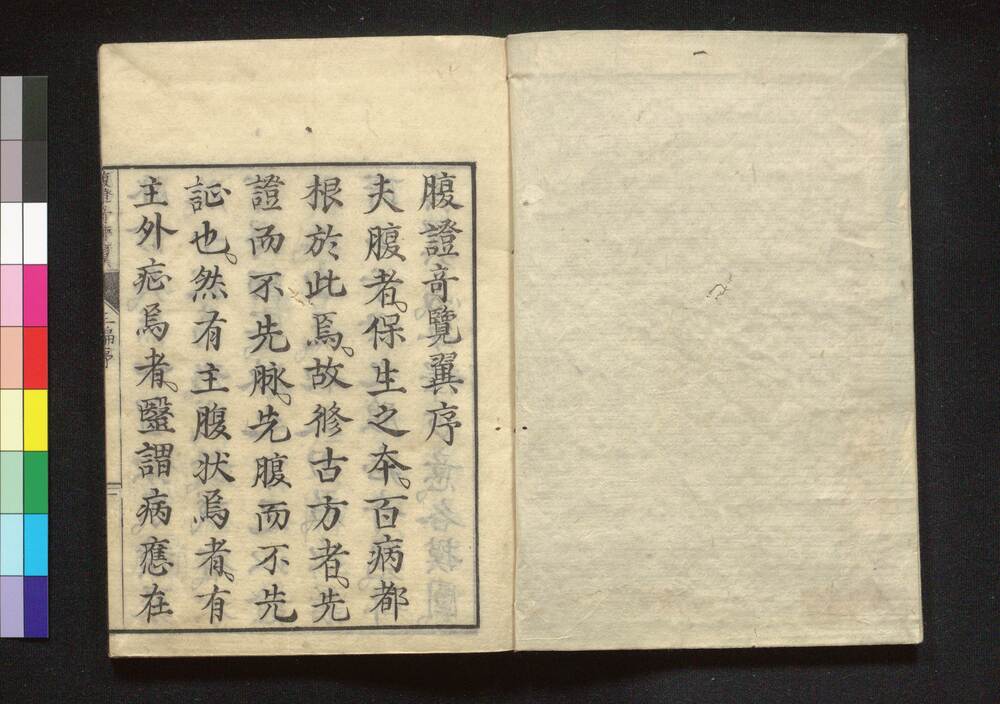 腹證竒覽翼序
夫腹者。保生之夲。百病都
根於此焉。故修古方者。先
證而不先脉。先腹而不先
証也。然有主腹状焉者。有
主外症焉者。毉謂病應在